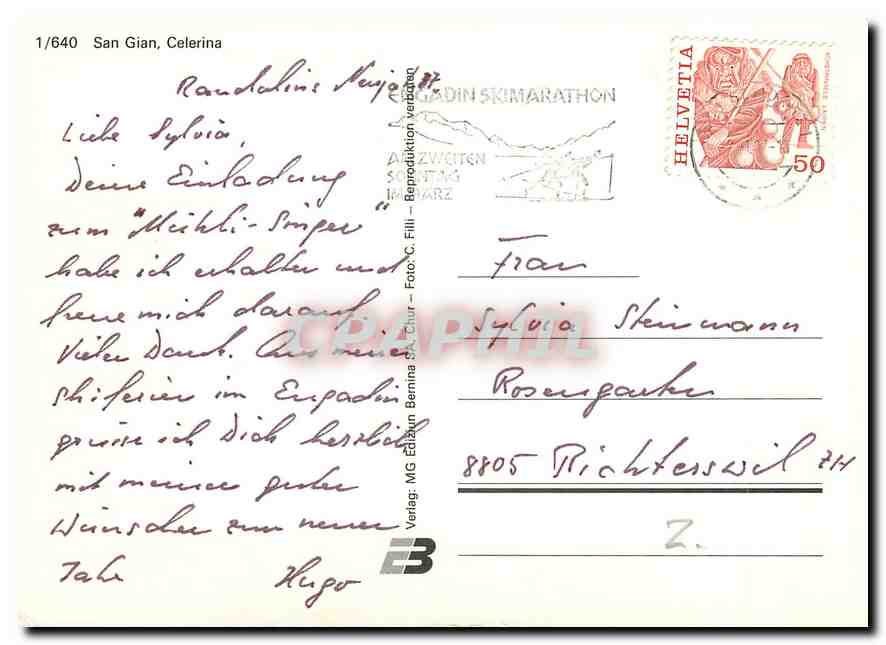 1/640 San Gian, Celerina
Randolins Neujahr
Liebe Sylvia,
Deine Einladung
zum "Mühli-Singer"
habe ich erhalten und
freue mich darauf.
Vielen Dank. Aus meinen
Skiferien im Engadin
grüsse ich Dich herzlich
mit meinen guten
Wünschen zum neuen
Jahr Hugo
Verlag: MG Ediziun Bernina SA, Chur – Foto: C. Filli – Reproduktion verboten
EB
ENGADIN SKIMARATHON
AM ZWEITEN
SONNTAG
IM MÄRZ
HELVETIA
50
Frau
Sylvia Steinmann
Rosengarten
8805 Richterswil ZH
Z.
CPAPHIL